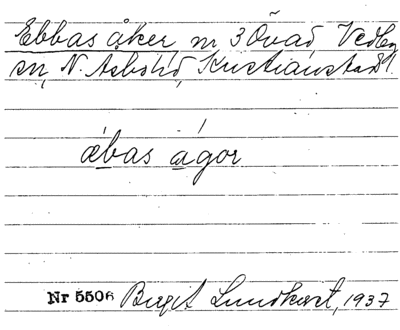 Ebbas åker, nr 3 Övad Vedby
sn, N. Åsbo hd, Kristianstads l.
æbas agor
Nr 5506 Birgit Lundkvist, 1937